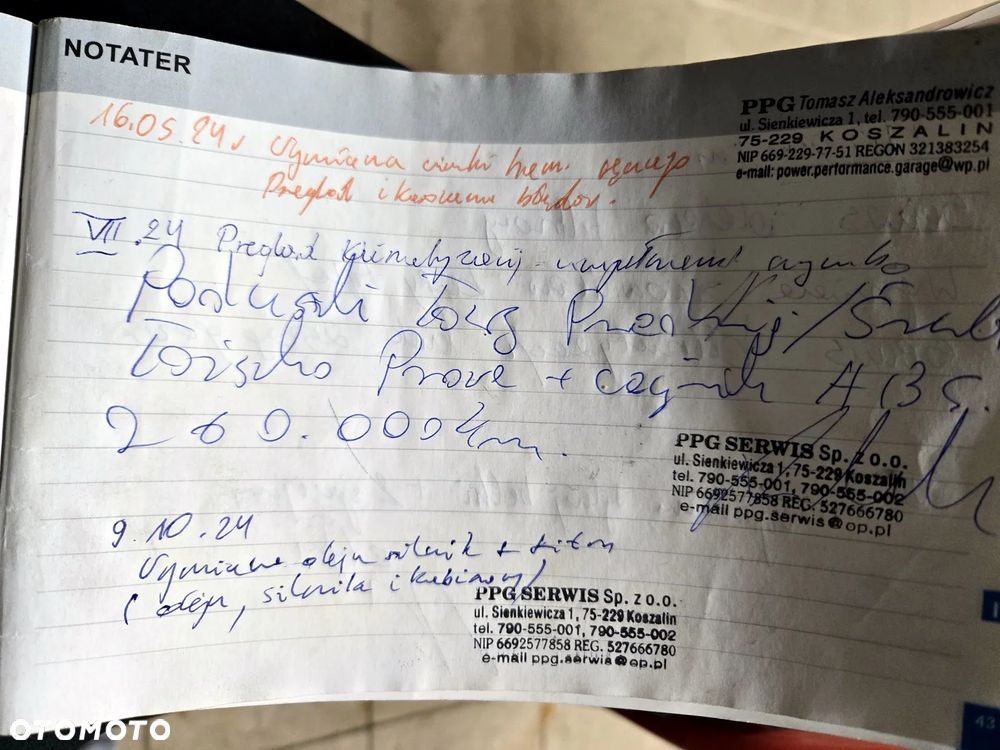 NOTATER
PPG Tomasz Aleksandrowicz
ul. Sienkiewicza 1, tel. 790-555-001
75-229 KOSZALIN
NIP 669-229-77-51 REGON 321383254
e-mail: power.performance.garage@wp.pl
16.05.24r Wymiana linki ham. ręcznego
Przegląd i kasowanie błędów.
VII.24 Przegląd klimatyzacji - uzupełnienie czynnika
Poduszki
Łożysko Prawe + czujnik
260.000km.
PPG SERWIS Sp. z o.o.
ul. Sienkiewicza 1, 75-229 Koszalin
tel. 790-555-001, 790-555-002
NIP 6692577858 REG. 527666780
e-mail ppg.serwis@op.pl
9.10.24
Wymiana oleju silnik + filtry
(oleju, silnika i kabinowy)
PPG SERWIS Sp. z o.o.
ul. Sienkiewicza 1, 75-229 Koszalin
tel. 790-555-001, 790-555-002
NIP 6692577858 REG. 527666780
e-mail ppg.serwis@op.pl
43
OTOMOTO